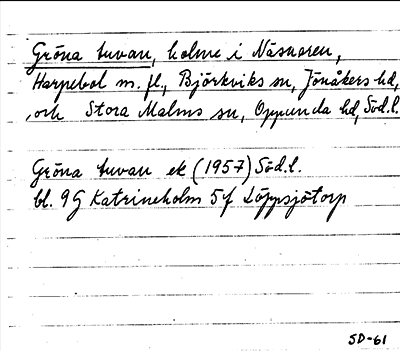 Gröna tuvan, holme i Näsnaren,
Harpebol m. fl., Björkviks sn, Jönåkers hd,
och Stora Malms sn, Oppunda hd, Söd.l.
Gröna tuvan ek (1957) Söd.l.
bl. 9G Katrineholm 5f Löppsjötorp
SD-61